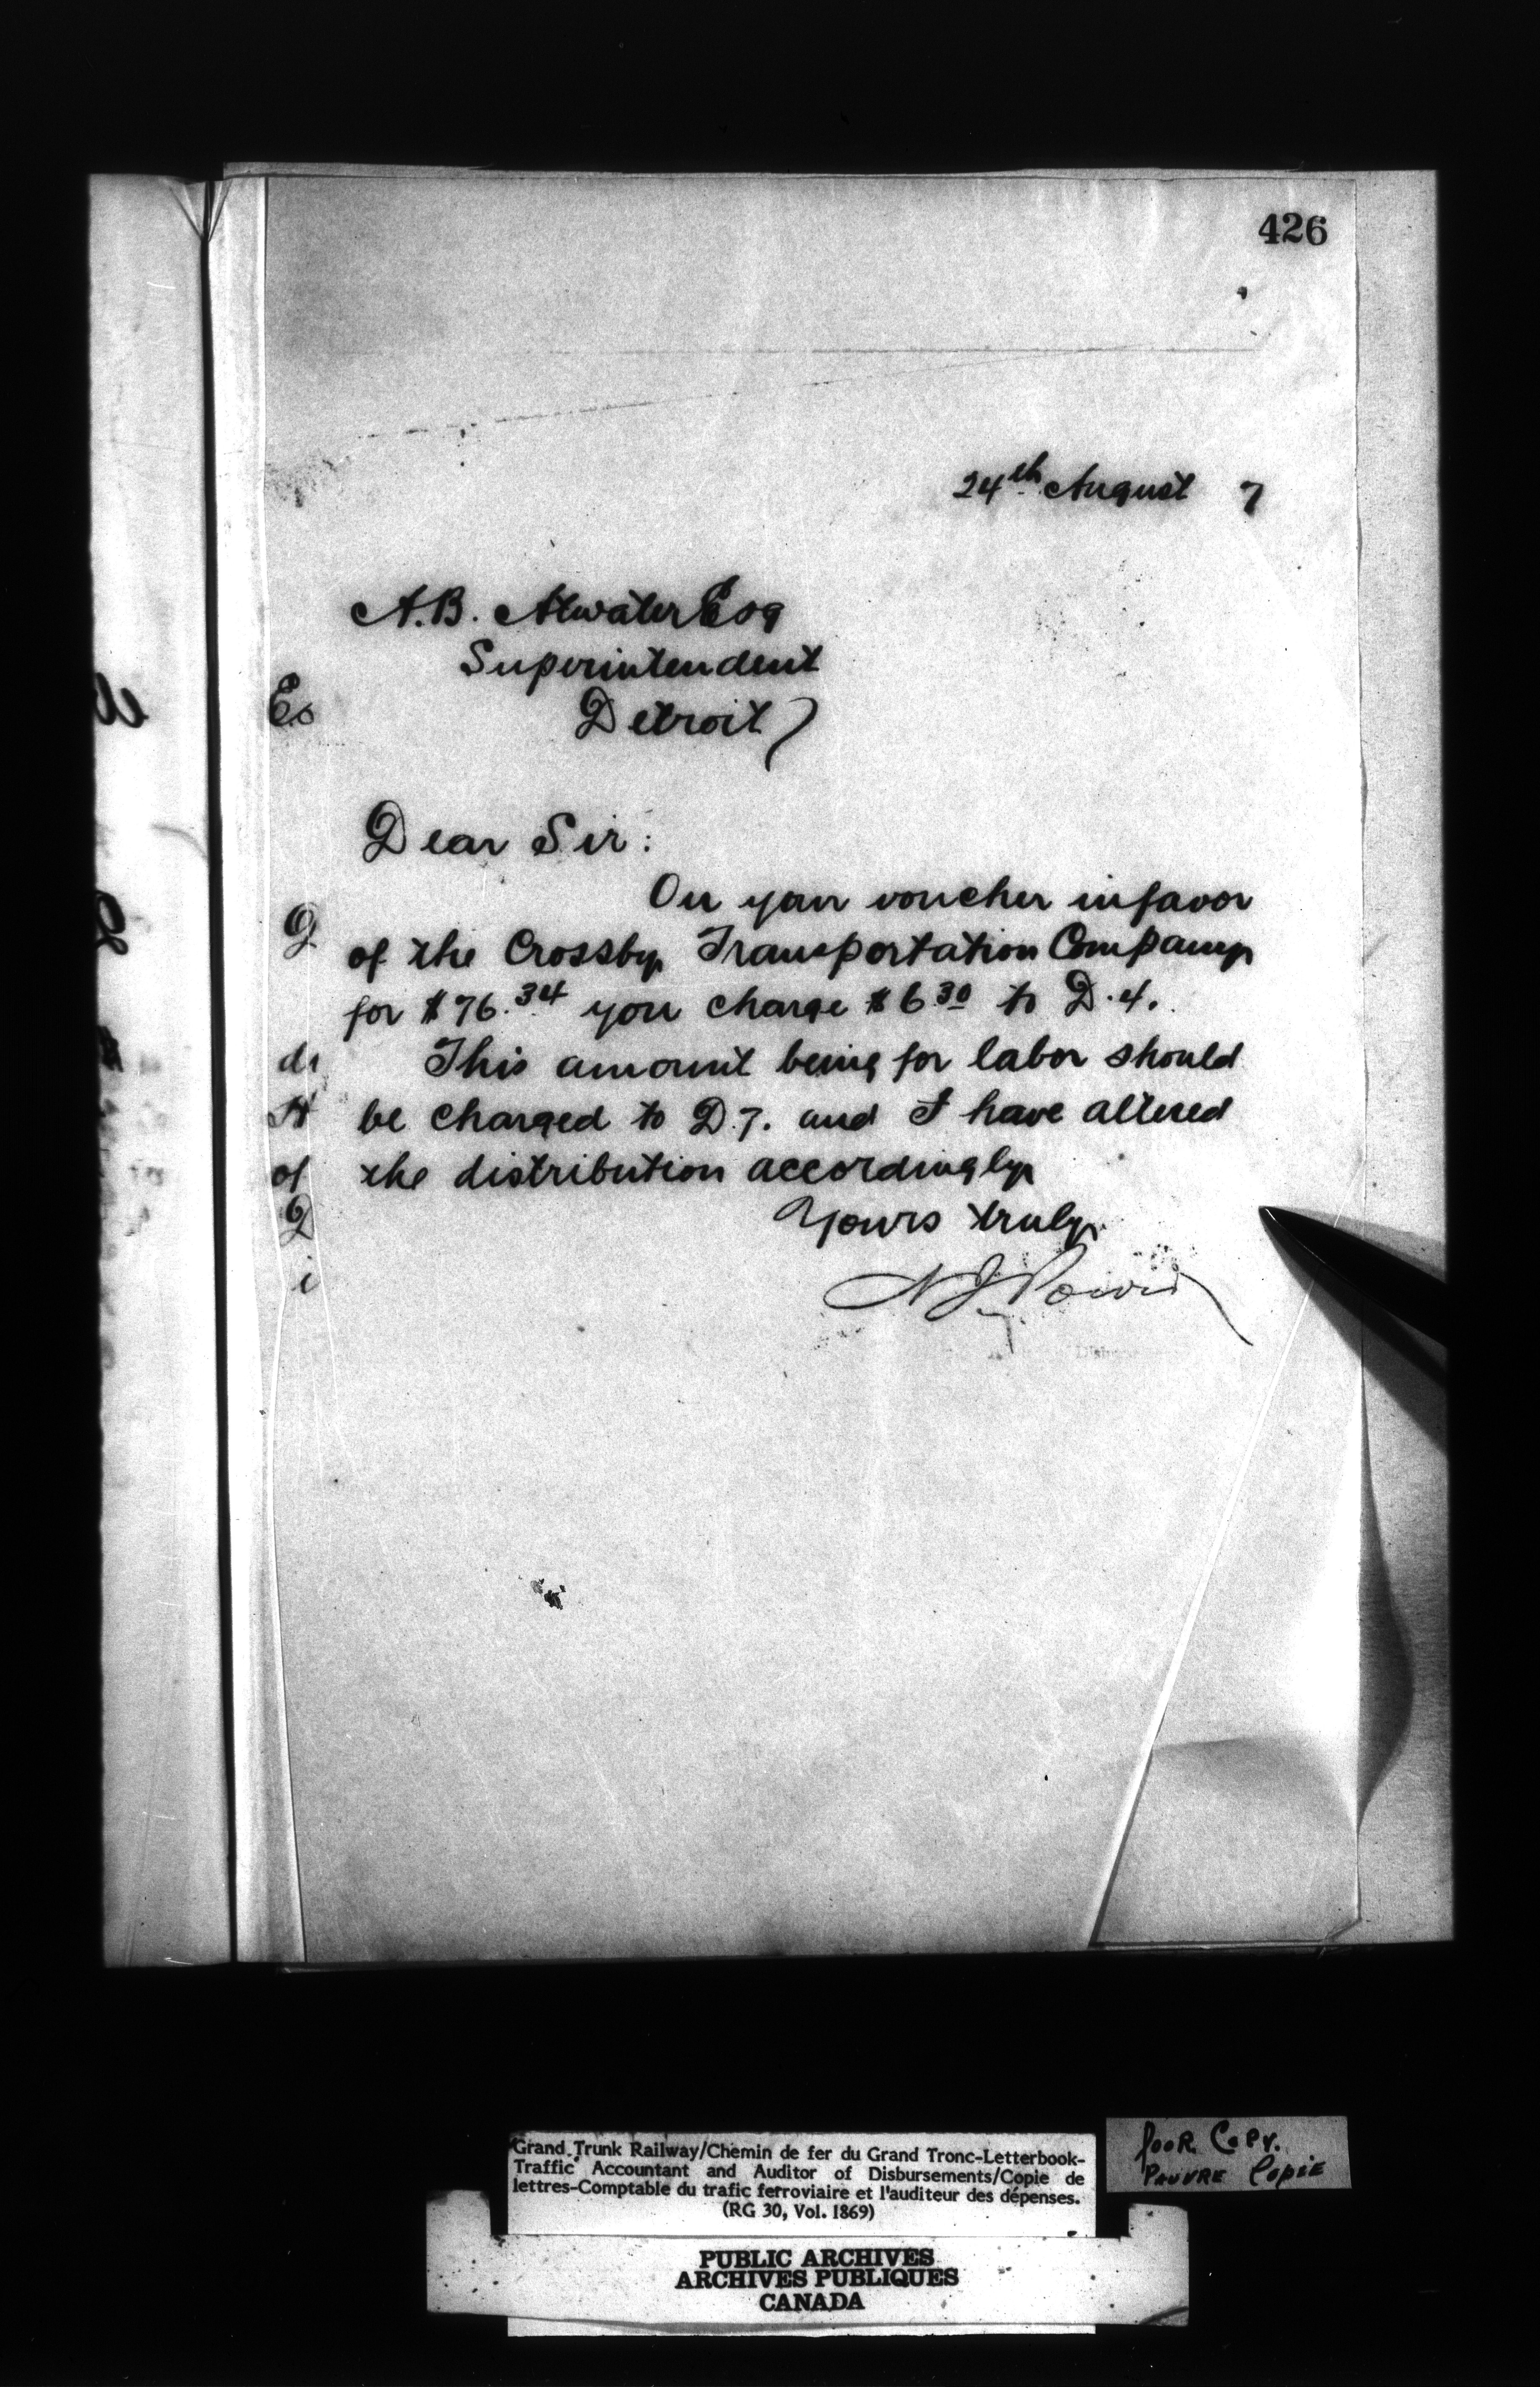 426
24th August 7
A.B. Atwater Esq
Superintendent
Es
Detroit
Dear Sir:
On your voucher in favor
of the Crossby Transportation Company
for $76.34 you charge $6 30 to D.4.
This amount being for labor should
be charged to D.7. and I have altered
of the distribution accordingly
Yours truly
N J Power
Grand Trunk Railway/Chemin de fer du Grand Tronc-Letterbook-
Traffic Accountant and Auditor of Disbursements/Copie de
lettres-Comptable du trafic ferroviaire et l'auditeur des dépenses.
(RG 30, Vol. 1869)
Poor Copy.
Pauvre Copie
PUBLIC ARCHIVES
ARCHIVES PUBLIQUES
CANADA